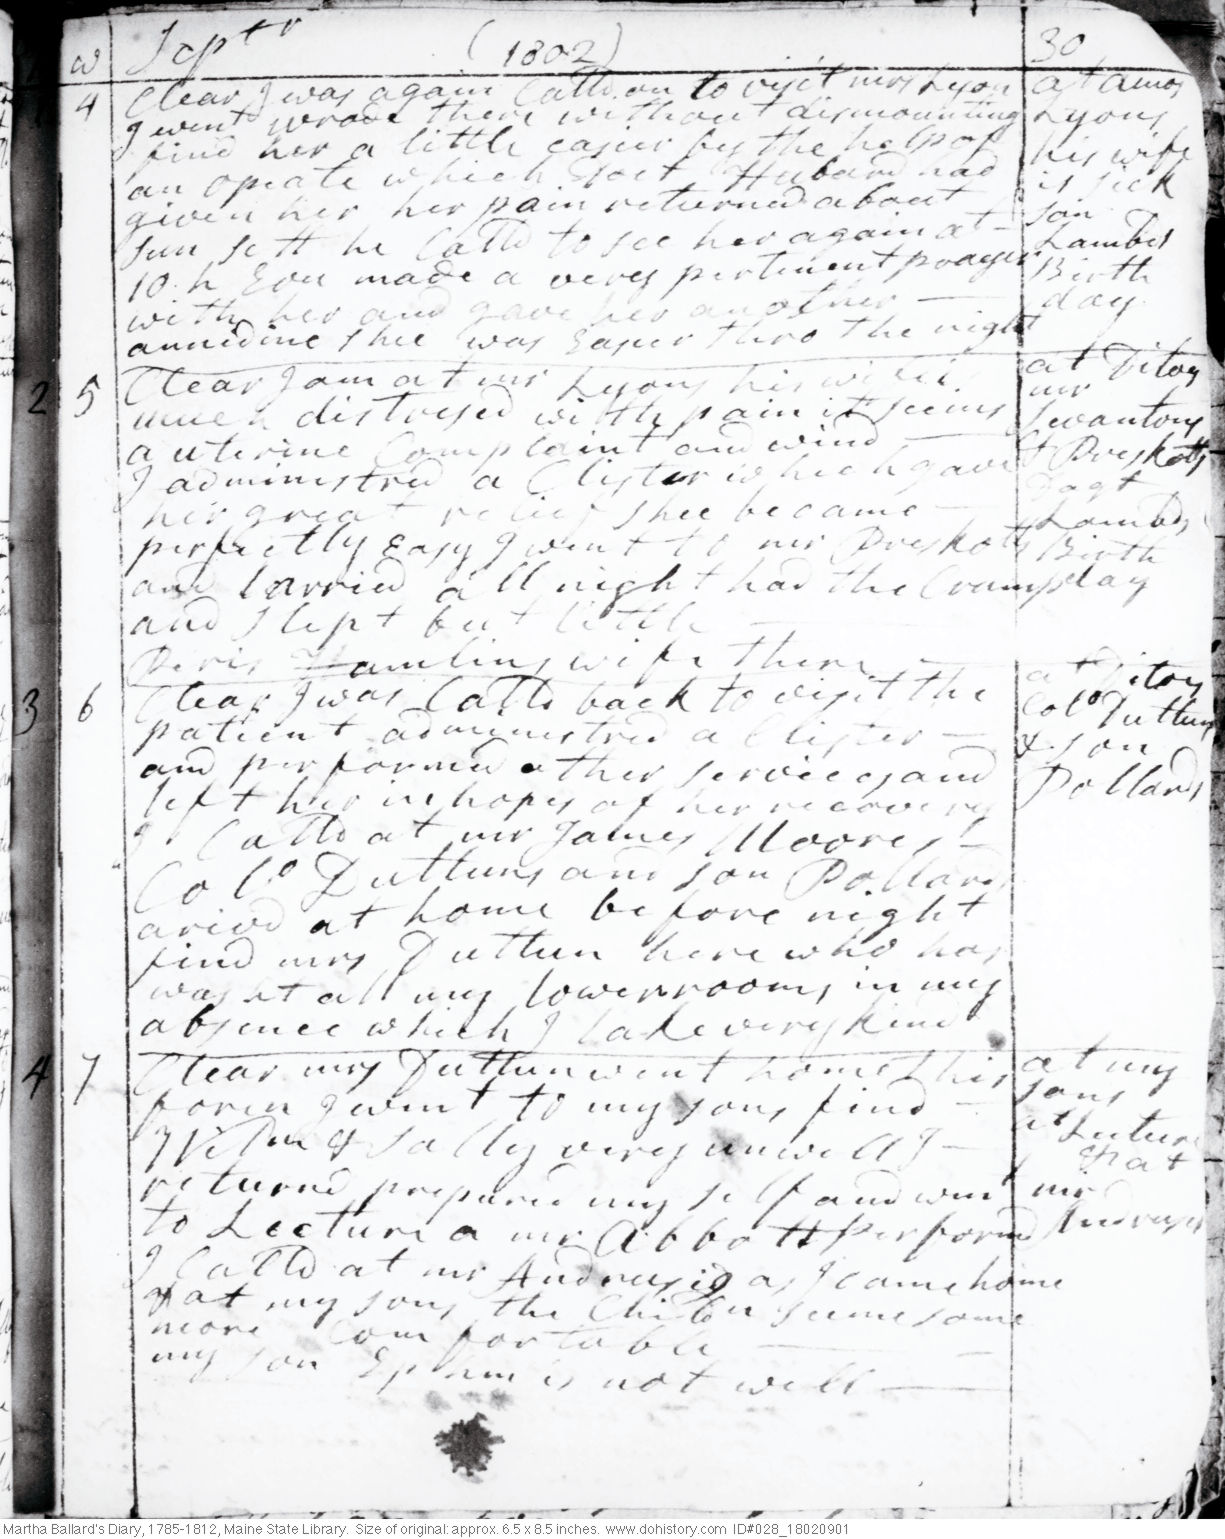 w Septr (1802) 30
4 Clear I was again Calld on to visit mrs Lyon
I went wrode there without dismounting
find her a little easier by the help of
an opeate which Doct Hubard had
given her her pain returned about
sun sett he Calld to see her again at -
10 h Evn made a very pertinent prayer
with her and gave her another -
annidine shee was Easier thro the night
at Amos
Lyons
his wife
is sick
son
Lambds
Birth
day
2 5 Clear I am at mr Lyons his wife is
much distresed with pain it seems
a uterine Complaint and wind -
I administred a Clister which gave
her great relief shee became -
perfectly Easy I went to mr Preskots
and tarried all night had the Cramp
and slept but little
Peris Hamlins wife there
at Ditoy
mr
Swantons
& Preskots
Dagt
Lambds
Birth
day
3 6 Clear I was Calld back to visit the
patient administred a Clister -
and performd other services and
left her in hopes of her recovery
I Calld at mr James Moores -
Colo Duttuns and son Pollards
arivd at home before night
find mrs Duttun here who has
washt all my lower rooms in my
absence which I take very kind
at Ditoy
Colo Duttuns
& son
Pollards
4 7 Clear mrs Duttun went home this
foren I went to my sons find -
Wilm & Sally very unwell I -
returnd prepared my self and went
to Lecture a mr Abbott performd
I Calld at mr Andrusis as I came home
& at my sons the Childn seeme some
more Comfortable -
my son Ephm is not well -
at my
sons
at Lecture
& at
mr
Andrusis
Martha Ballard's Diary, 1785-1812, Maine State Library. Size of original: approx. 6.5 x 8.5 inches. www.dohistory.com ID#028_18020901